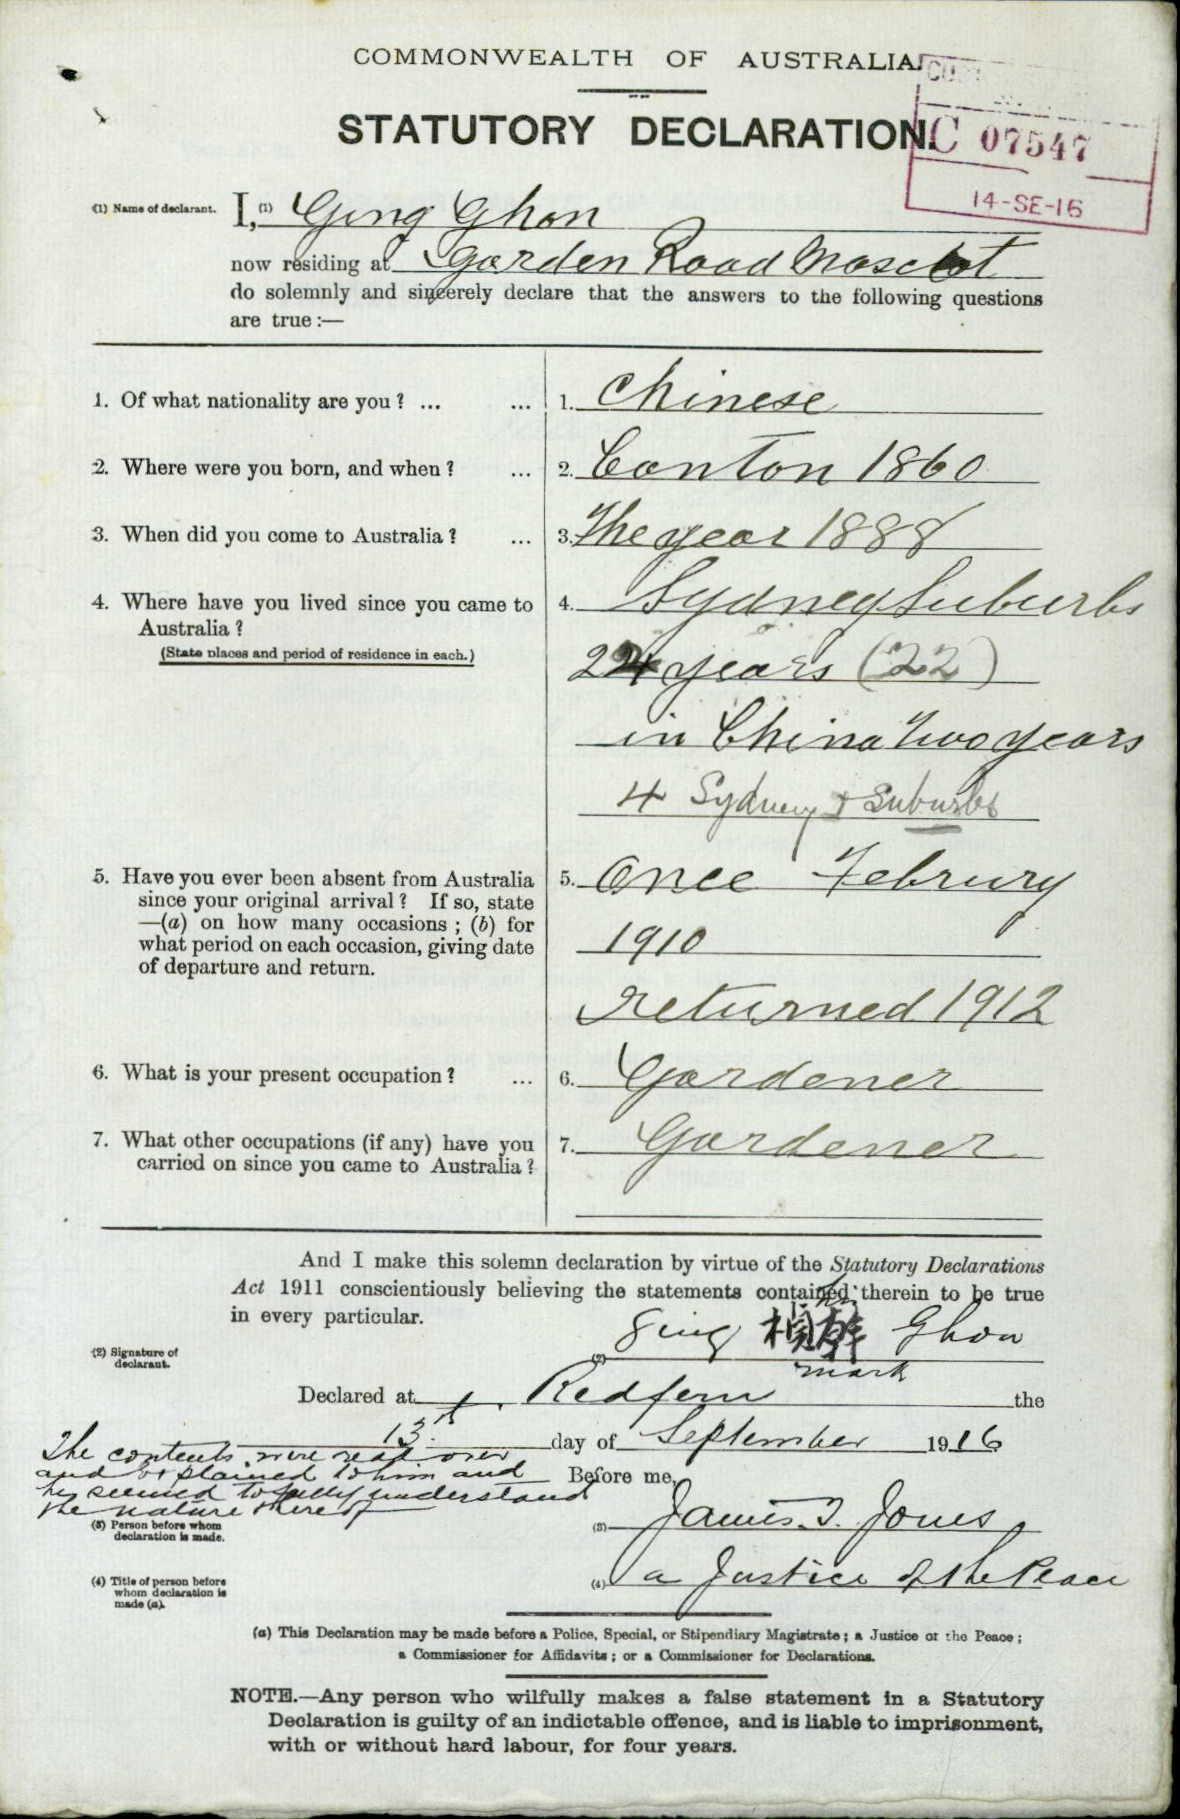 COMMONWEALTH OF AUSTRALIA.
STATUTORY DECLARATION.
C 07547
14-SE-16
(1) Name of declarant. I, (1) Ging Ghon
now residing at Garden Road Mascot
do solemnly and sincerely declare that the answers to the following questions
are true:—
1. Of what nationality are you? ... ... 1. Chinese
2. Where were you born, and when? ... 2. Canton 1860
3. When did you come to Australia? ... 3. The year 1888
4. Where have you lived since you came to 4. Sydney Suburbs
Australia?
(State places and period of residence in each.)
22 years (22)
in China two years
4 Sydney & Suburbs
5. Have you ever been absent from Australia 5. Once Februry
since your original arrival? If so, state
—(a) on how many occasions; (b) for
what period on each occasion, giving date 1910
of departure and return.
returned 1912
6. What is your present occupation? ... 6. Gardener
7. What other occupations (if any) have you 7. Gardener
carried on since you came to Australia?
And I make this solemn declaration by virtue of the Statutory Declarations
Act 1911 conscientiously believing the statements contained therein to be true
in every particular.
his
(2) Signature of declarant. (2) Ging Ghon
mark
Declared at Redfern the
13th day of September 1916
The contents were read over
and explained to him and Before me,
he seemed to fully understand
the nature thereof
(3) Person before whom declaration is made. (3) James T. Jones
(4) Title of person before whom declaration is made (a). (4) a Justice of the Peace
(a) This Declaration may be made before a Police, Special, or Stipendiary Magistrate; a Justice of the Peace;
a Commissioner for Affidavits; or a Commissioner for Declarations.
NOTE.—Any person who wilfully makes a false statement in a Statutory
Declaration is guilty of an indictable offence, and is liable to imprisonment,
with or without hard labour, for four years.